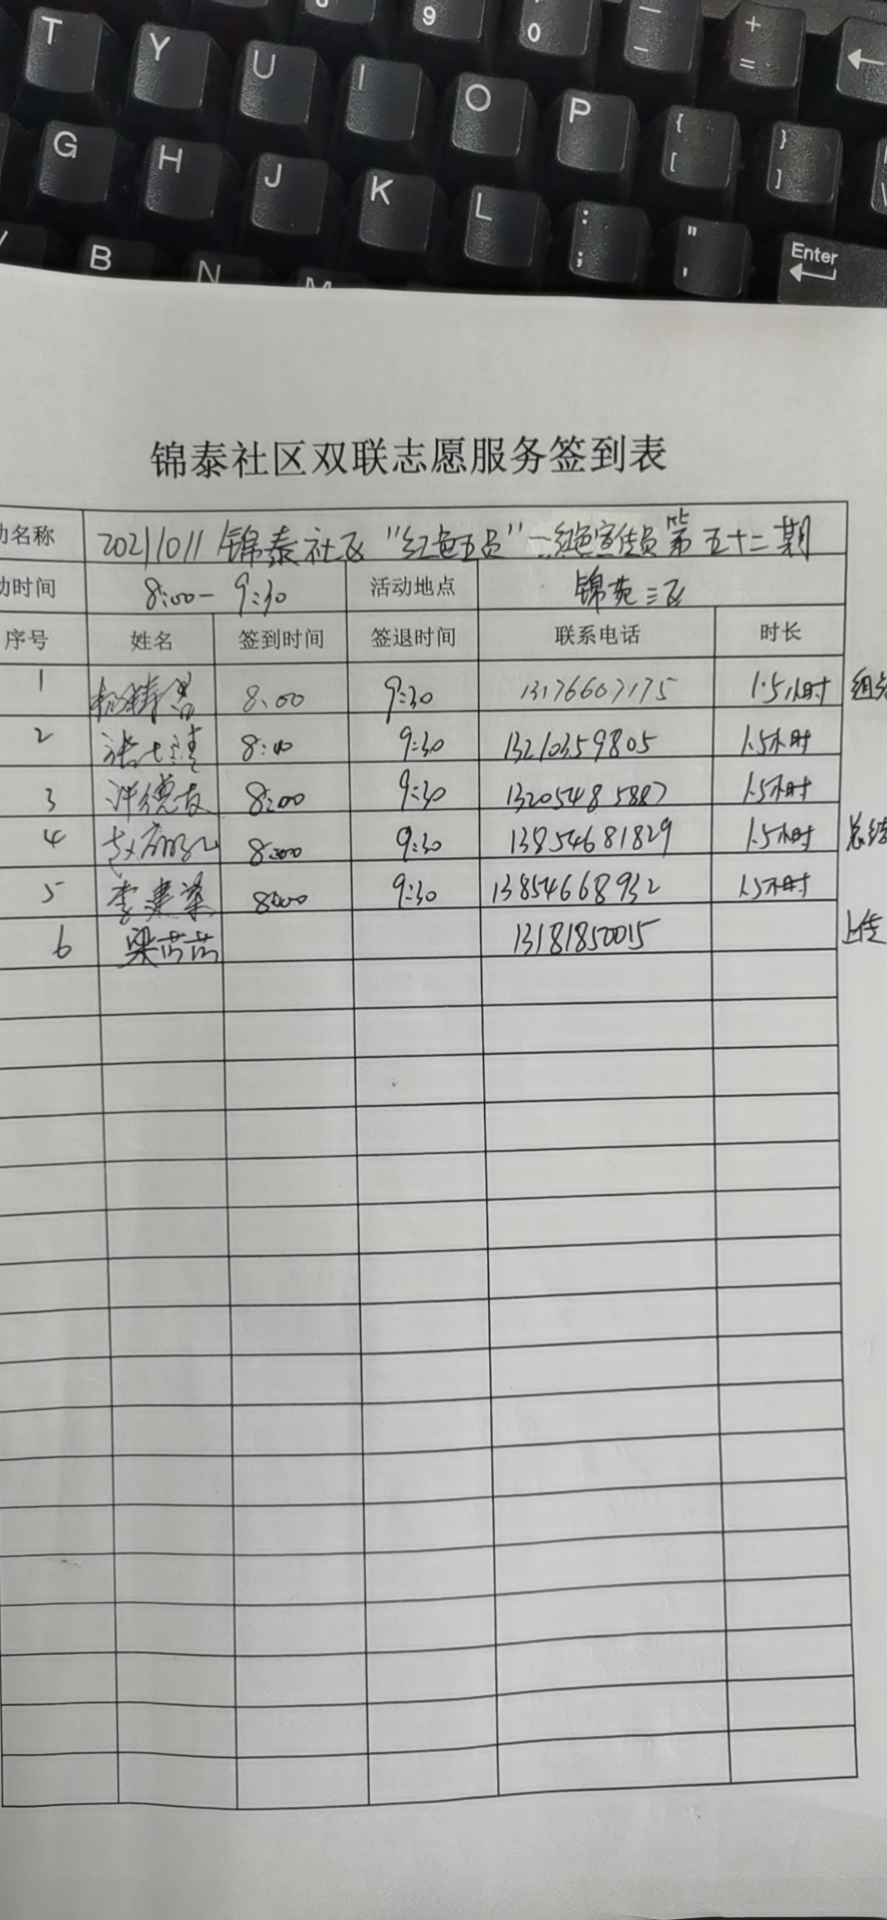 8 9 0 — - + = ←
T Y U I O P { [ } ]
G H J K L : ; " ' Enter
B N M
锦泰社区双联志愿服务签到表
动名称 20211011锦泰社区"红色五员"—红色宣传员第五十二期
动时间 8:00-9:30 活动地点 锦苑三区
序号 姓名 签到时间 签退时间 联系电话 时长
1 8:00 9:30 13176607175 1.5小时
2 8:00 9:30 13210359805 1.5小时
3 许德友 8:00 9:30 13205485887 1.5小时 
4 8:00 9:30 13854681829 1.5小时 总结
5 李建 8:00 9:30 13854668932 1.5小时
6 梁芮芮 13181850015 上传